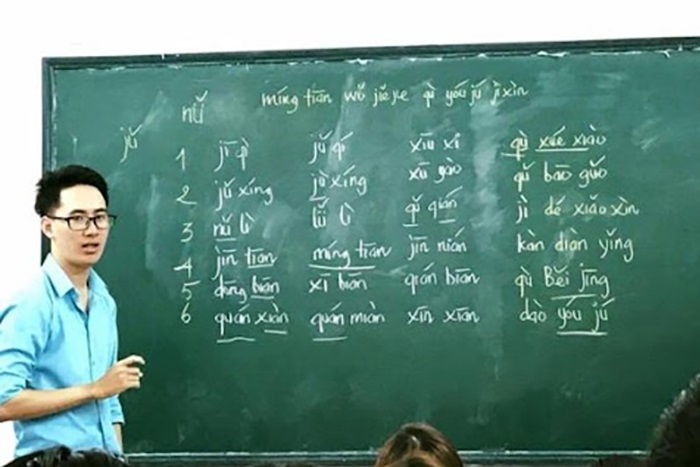 míng tiān wǒ jiějie qù yóu jú jì xìn
nǚ
jú
1 jī qì jǔ qí xiū xi qù xué xiào
2 jǔ xíng jù xíng xū yào qǔ bāo guǒ
3 nǔ lì lǚ lì qǔ qián jì dé xiǎo xīn
4 jīn tiān míng tiān jīn nián kàn diàn yǐng
5 dōng biān xī biān qián biān qù Běi jīng
6 quán xiàn quán miàn xīn xiān dào yóu jú